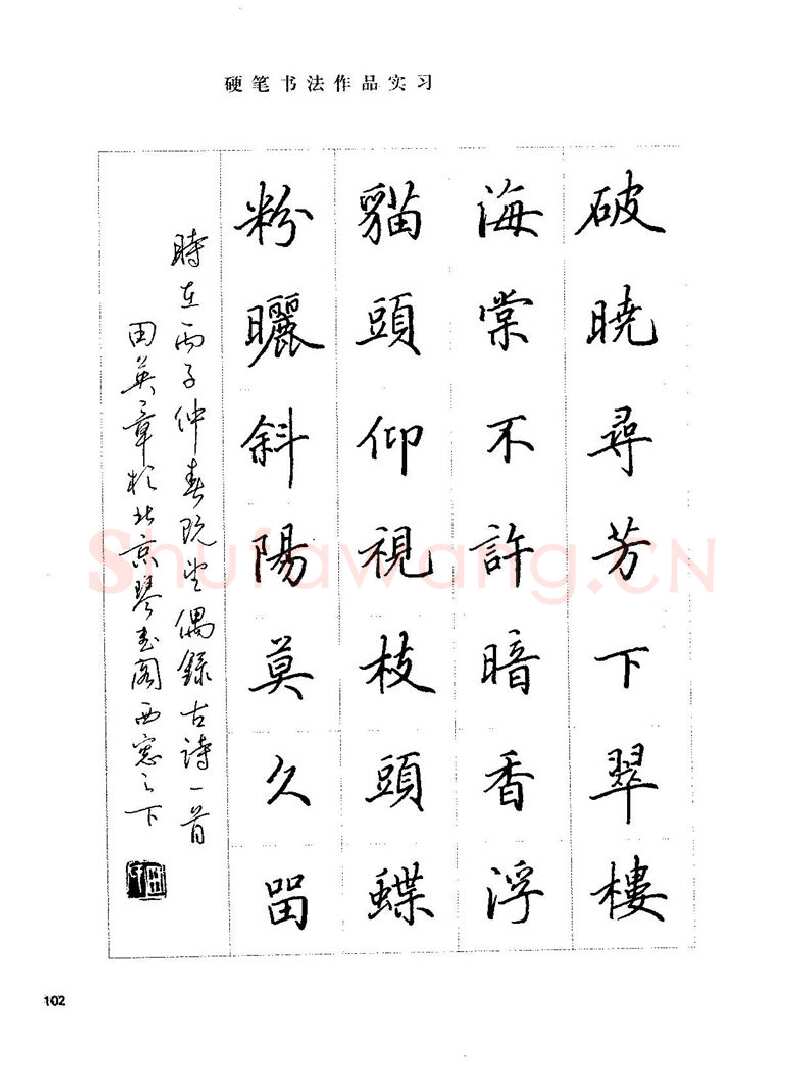 硬笔书法作品实习
破曉尋芳下翠樓
海棠不許暗香浮
貓頭仰視枝頭蝶
粉曬斜陽莫久留
時在丙子仲春既望偶錄古詩一首
田英章於北京琴書閣西窓之下
102
Shufawang.CN